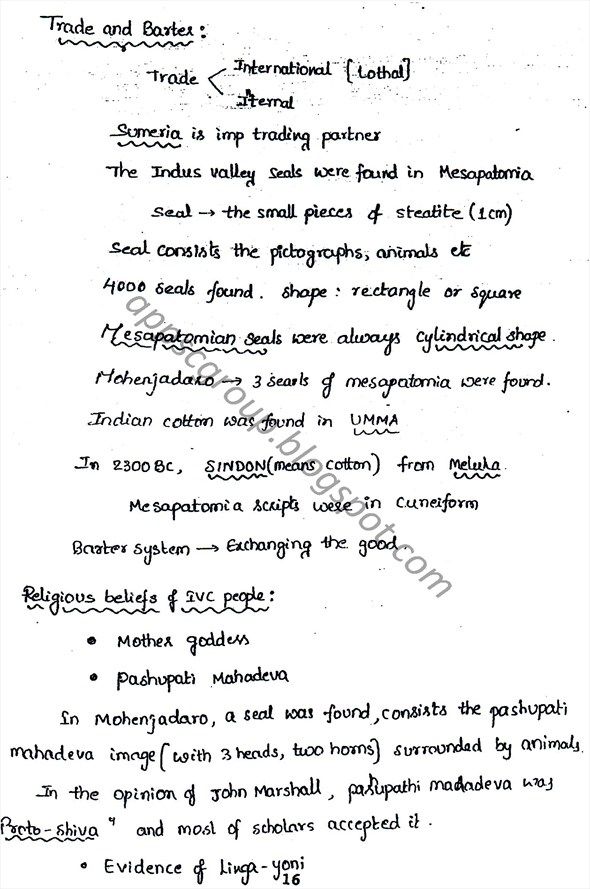 Trade and Barter :
Trade < International [Lothal]
Iternal
Sumeria is imp trading partner
The Indus valley seals were found in Mesapatomia
Seal → the small pieces of steatite (1cm)
Seal consists the pictographs, animals etc
4000 seals found. shape : rectangle or square
Mesapatomian seals were always cylindrical shape.
Mohenjadaro → 3 searls of mesapatomia were found.
Indian cotton was found in UMMA
In 2300 BC, SINDON (means cotton) from Meluha.
Mesapatomia scripts were in Cuneiform
Barter system → Exchanging the good
appscgroup.blogspot.com
Religious beliefs of IVC people :
• Mother goddess
• Pashupati Mahadeva
In Mohenjadaro, a seal was found, consists the pashupati
mahadeva image (with 3 heads, two horns) surrounded by animals.
In the opinion of John Marshall, pasupathi madadeva was
Proto-shiva" and most of scholars accepted it.
• Evidence of Linga-yoni
16